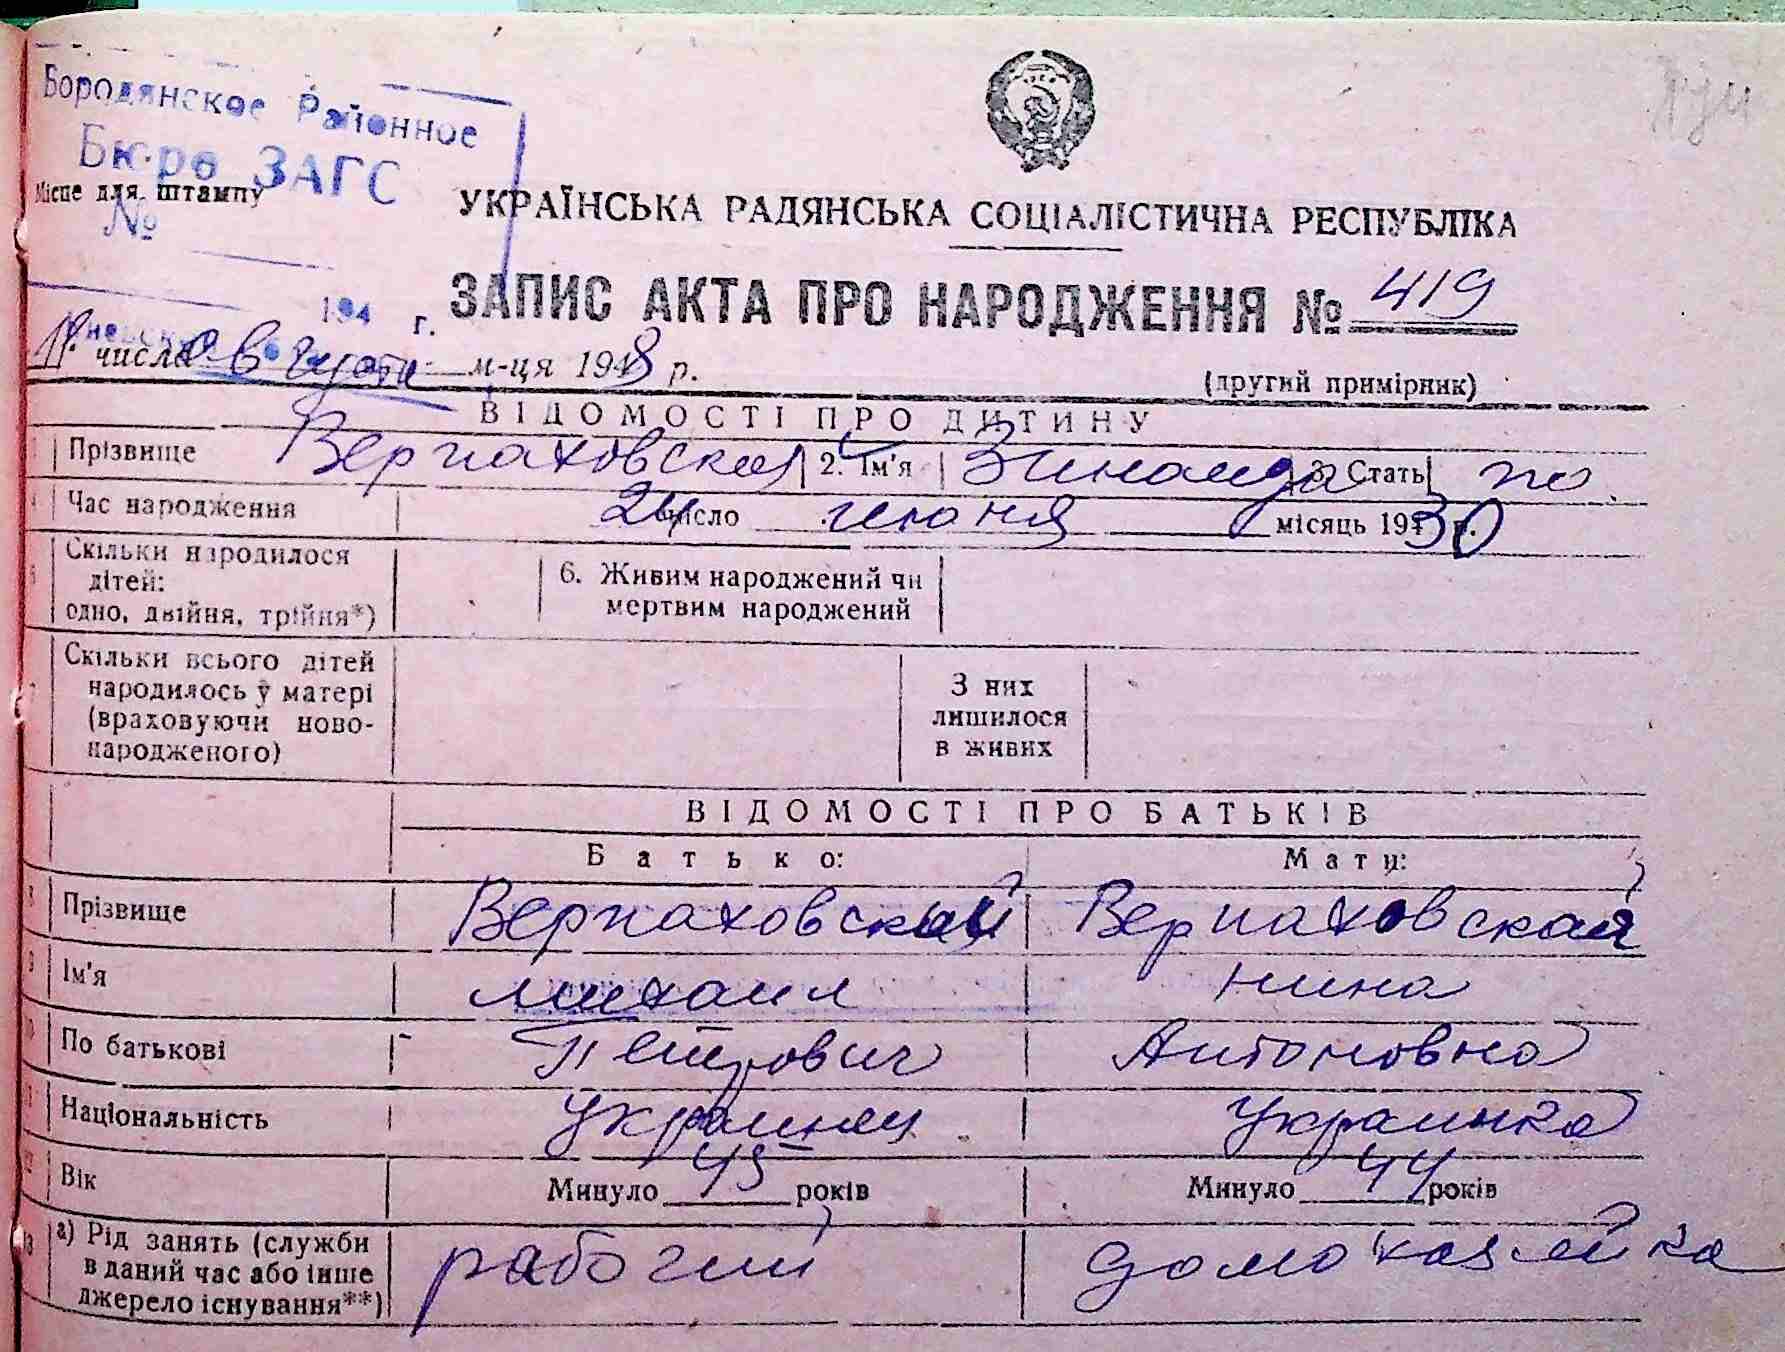 Бородянское Районное
Бюро ЗАГС
Місце для штампу
№
УКРАЇНСЬКА РАДЯНСЬКА СОЦІАЛІСТИЧНА РЕСПУБЛІКА
194 г.
ЗАПИС АКТА ПРО НАРОДЖЕННЯ № 419
числа августа м-ця 1948 р.
(другий примірник)
ВІДОМОСТІ ПРО ДИТИНУ
Прізвище Верпаховская 2. Ім'я Зинаида 3. Стать
4 Час народження 24 число июня місяць 1930 р.
5 Скільки народилося дітей: одно, двійня, трійня*)
6. Живим народжений чи мертвим народжений
7 Скільки всього дітей народилось у матері (враховуючи ново-народженого)
З них лишилося в живих
ВІДОМОСТІ ПРО БАТЬКІВ
Батько: Мати:
8 Прізвище Верпаховский Верпаховская
9 Ім'я Михаил Нина
10 По батькові Петрович Антоновна
11 Національність Украинец Украинка
12 Вік Минуло 45 років Минуло 44 років
13 а) Рід занять (служби в даний час або інше джерело існування**) рабочий домохазяйка